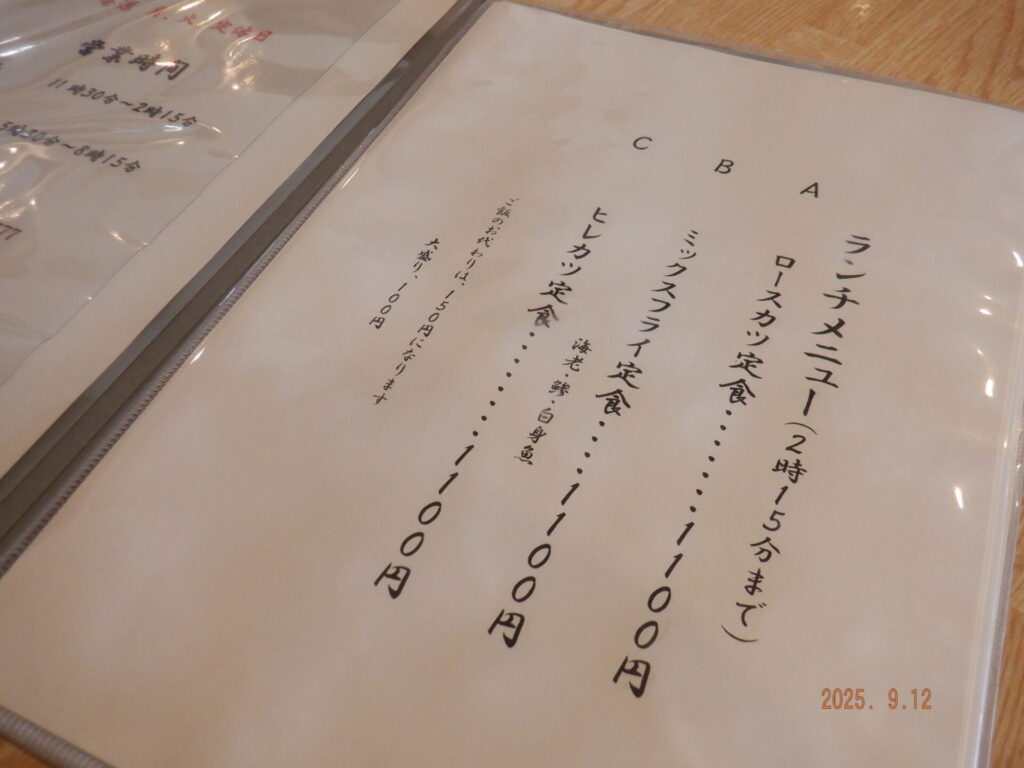 ランチメニュー(2時15分まで)
A ロースカツ定食・・・・・・・・1100円
B ミックスフライ定食・・・・・1100円
海老・鯵・白身魚
C ヒレカツ定食・・・・・・・・1100円
ご飯のお代わりは、150円になります
大盛り・100円
営業時間
11時30分〜2時15分
5時30分〜8時15分
2025. 9.12